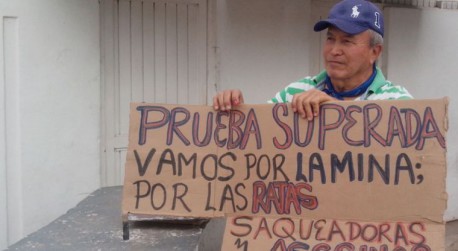 PRUEBA SUPERADA
VAMOS POR LA MINA;
POR LAS RATAS
SAQUEADORAS
Y ASESINAS
1